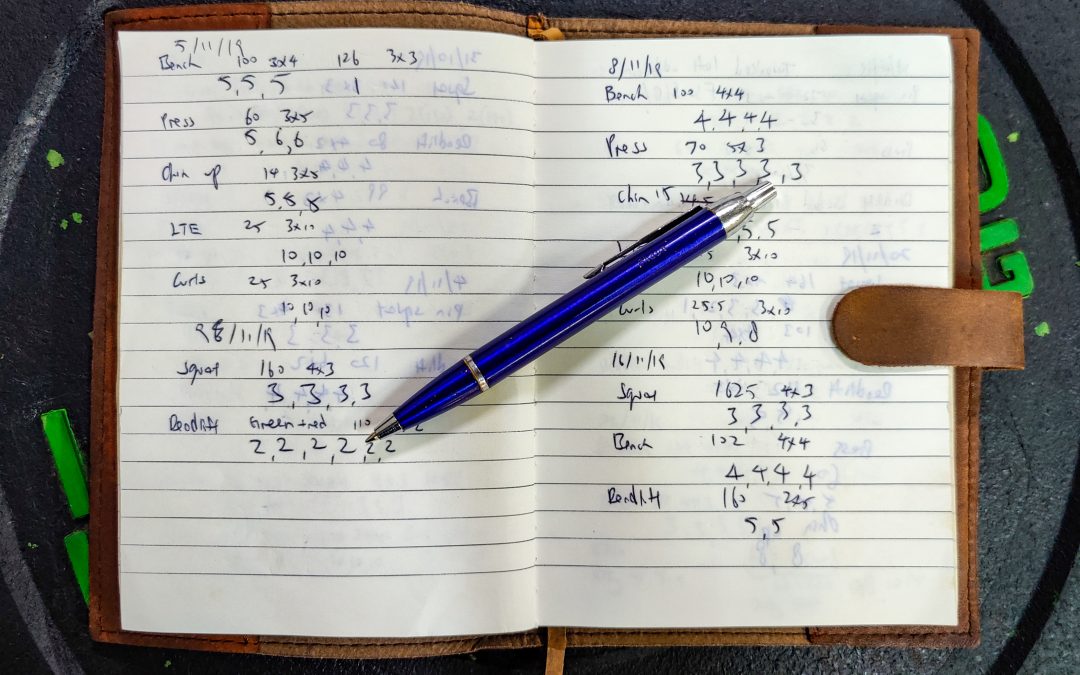 5/11/19
Bench 100 3x4 126 3x3
5,5,5 1
Press 60 3x5
5,6,6
Chin up 14 3x5
5,8,8
LTE 25 3x10
10,10,10
Curls 25 3x10
10,10,10
8/11/19
Squat 160 4x3
3,3,3,3
Deadlift Green+red 110
2,2,2,2,2,2
8/11/19
Bench 100 4x4
4,4,4,4
Press 70 5x3
3,3,3,3,3
Chin 15
5,5
3x10
10,10,10
Curls 25.5 3x10
10,9,8
16/11/19
Squat 1625 4x3
3,3,3,3
Bench 102 4x4
4,4,4,4
Deadlift 160 2x5
5,5